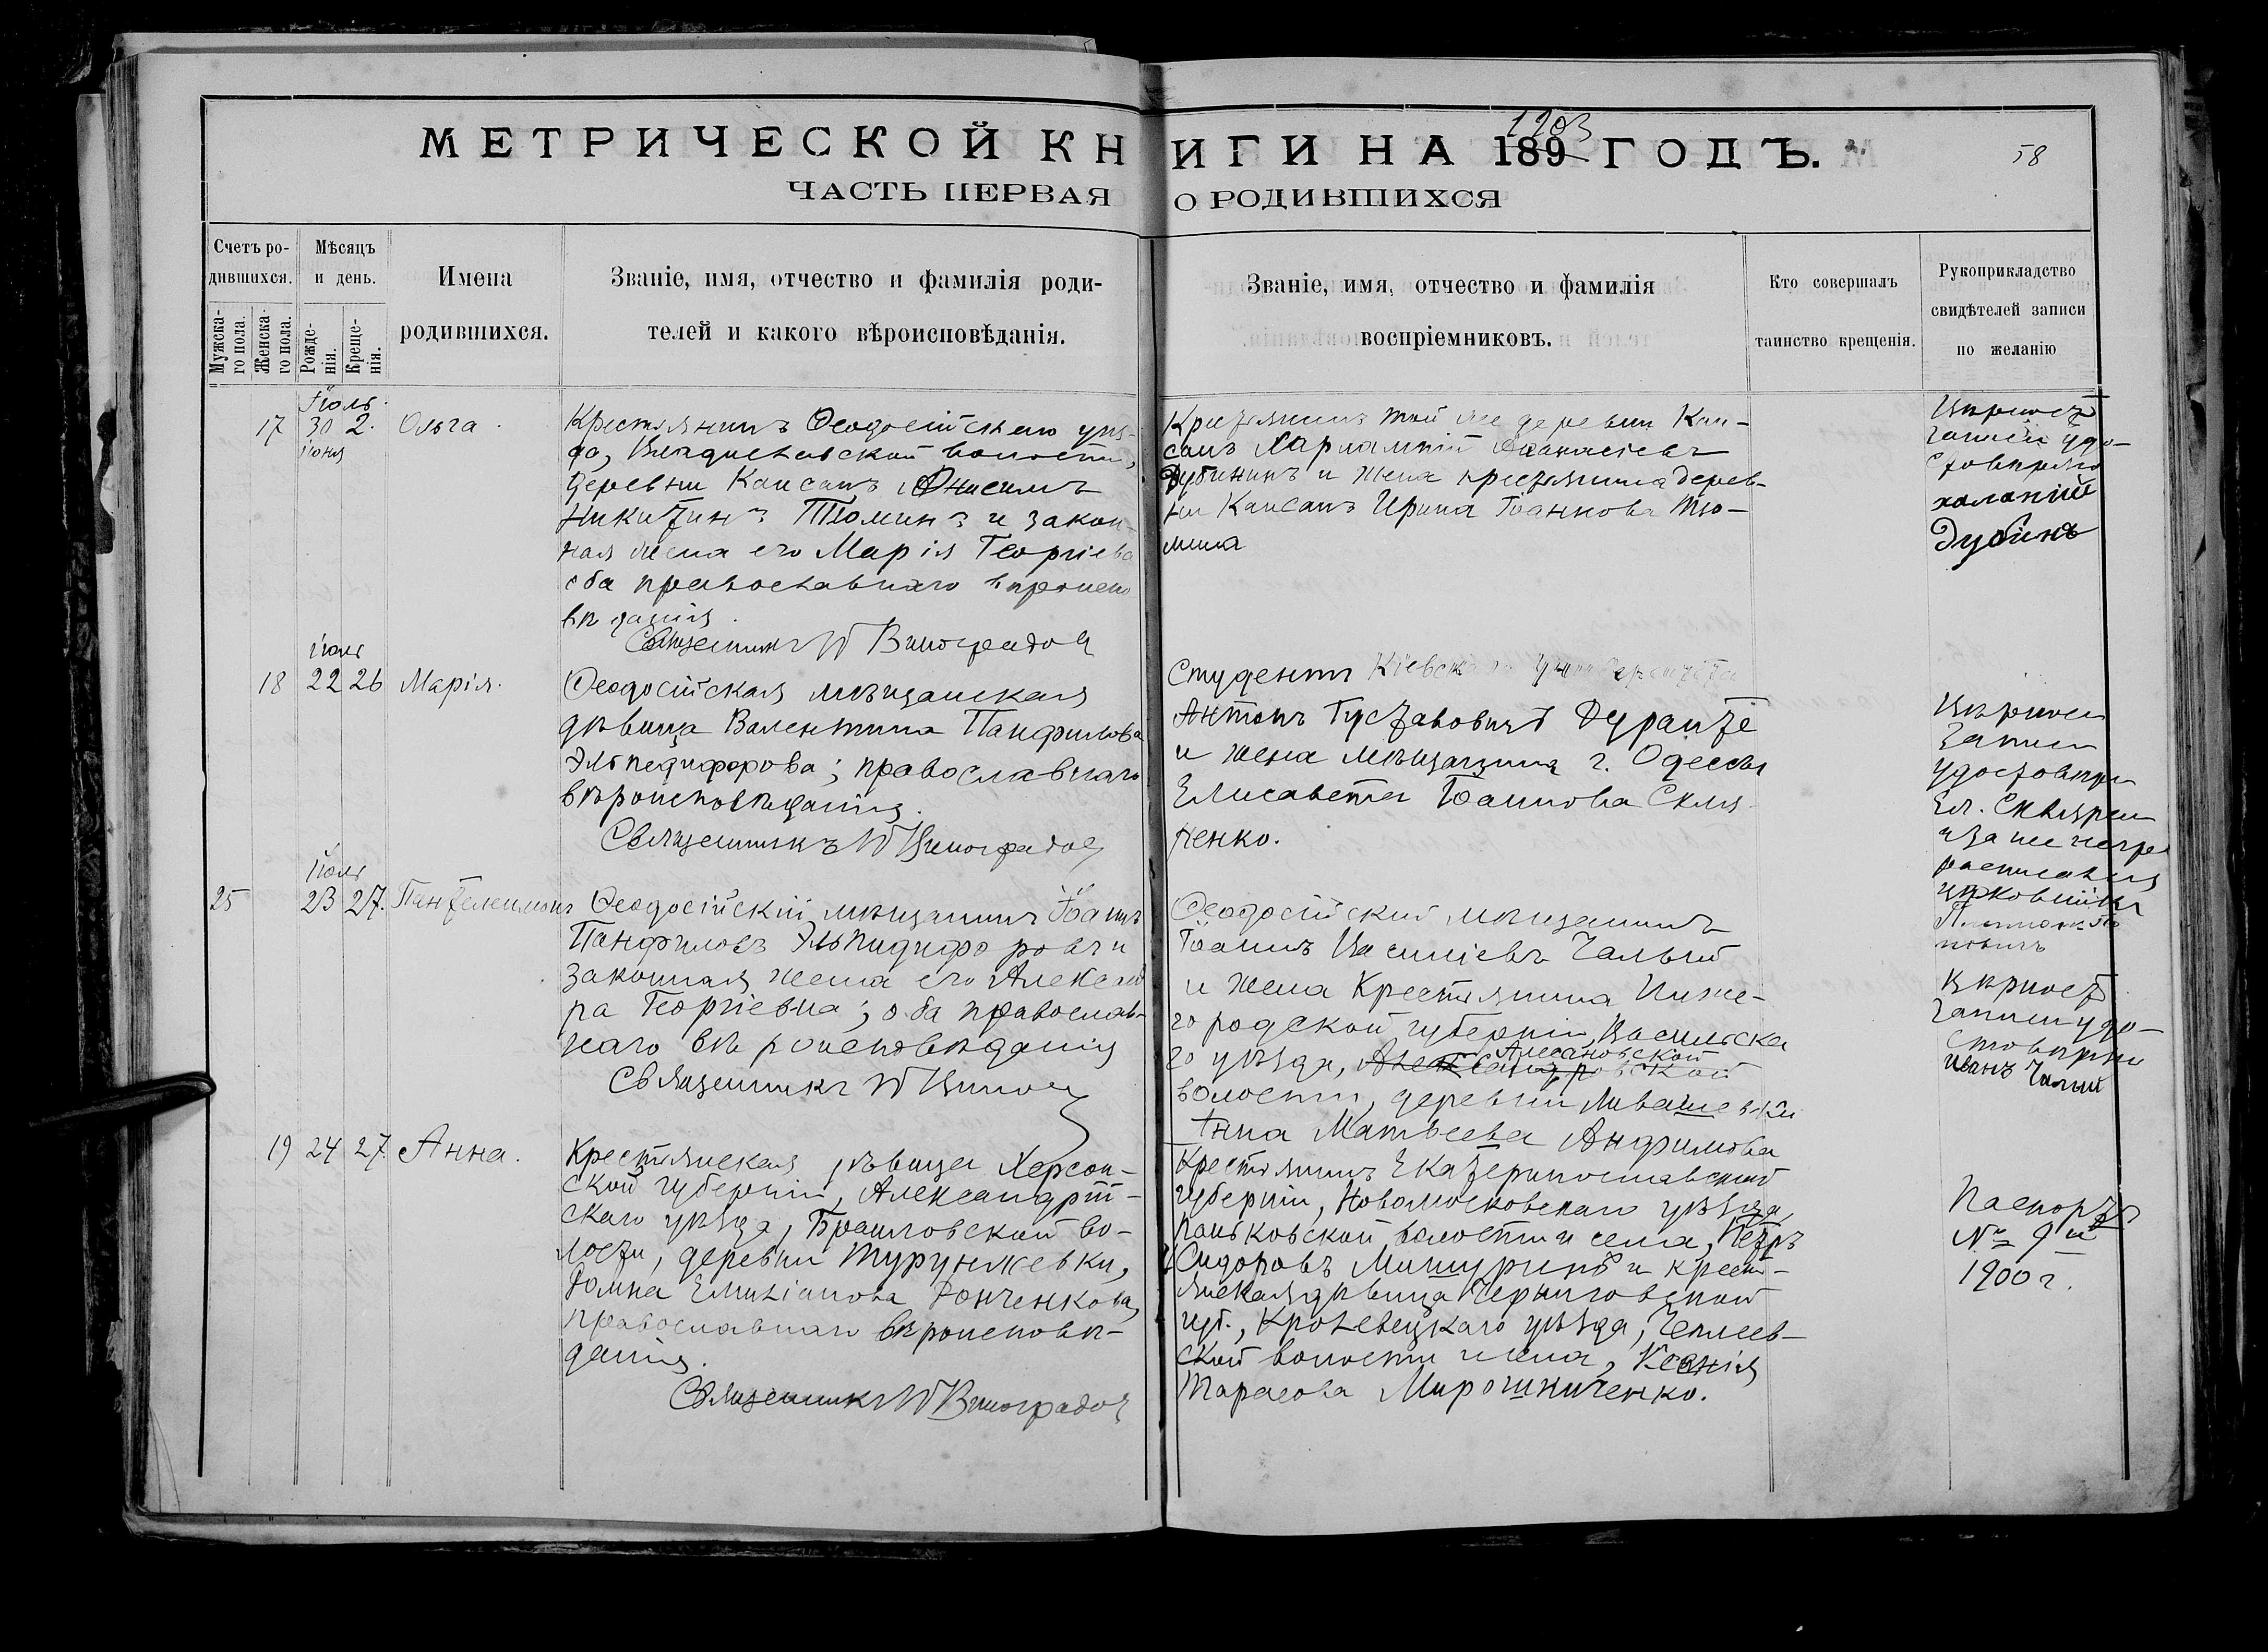 МЕТРИЧЕСКОЙ КНИГИ НА 189 ГОДЪ.
1903
58
ЧАСТЬ ПЕРВАЯ О РОДИВШИХСЯ
Счетъ ро-
дившихся.
Мужска-
го пола.
Женска-
го пола.
Мѣсяцъ
и день.
Рожде-
нія.
Креще-
нія.
Имена
родившихся.
Званіе, имя, отчество и фамилія роди-
телей и какого вѣроисповѣданія.
Званіе, имя, отчество и фамилія
воспріемниковъ.
Кто совершалъ
таинство крещенія.
Рукоприкладство
свидѣтелей записи
по желанію
Іюль
17 30 2. Ольга.
іюня
Крестьянинъ Ѳеодосійскаго уѣз-
да, Владиславской волости,
деревни Капсанъ Онисимъ
Никитинъ Тюминъ и закон-
ная жена его Марія Георгіева
оба православнаго вѣроиспо
вѣданія.
Священникъ Виноградов
Крестьянинъ той же деревни Кап-
санъ Харлампій Аѳанасіевъ
Дубининъ и жена крестьянина дерев-
ни Капсанъ Ирина Іоаннова Тю-
мина
Вѣрность
записи удо-
стовѣряю
Дубинъ
Іюль
18 22 26 Марія.
Ѳеодосійская мѣщанская
дѣвица Валентина Панфилова
Эльпедифорова; православнаго
вѣроисповѣданія.
Священникъ Виноградов
Студентъ Кіевскаго Университета
Антонъ Густавовичъ Дуранте
и жена мѣщанина г. Одессы
Елисавета Іоаннова Скля
ренко.
Вѣрность
записи
удостовѣряю
Ел.
а за нее негра
росписался
Іюль
25 23 27. Пантелеимонъ
Ѳеодосійскій мѣщанинъ Іоаннъ
Панфиловъ Эльпидифоровъ и
законная жена его Александ
ра Георгіевна; оба православ-
наго вѣроисповѣданія
Священникъ
Ѳеодосійскій мѣщанинъ
Іоаннъ Василіевъ Чалый
и жена Крестьянина Ниже-
городской губерніи, Васильска
го уѣзда, Александровской
волости, деревни Ливашевки
Анна Матвеева Анфимова
Вѣрность
записи удо-
стовѣряю
Иванъ Чалый
19 24 27. Анна.
Крестьянская дѣвица Херсон-
ской губерніи, Александрій-
скаго уѣзда, Браиловской во-
лости, деревни Турунжевки,
Домна Емиліанова Донченкова,
православнаго вѣроисповѣ-
данія.
Священникъ Виноградов
Крестьянинъ Екатеринославской
губерніи, Новомосковскаго уѣзда,
волости и села, Петръ
Сидоровъ Мишуринъ и крест-
янская дѣвица Черниговской
губ., Кролевецкаго уѣзда, Чеплеев-
ской волости и села, Ксенія
Тарасова Мирошниченко.
Паспортъ
№ 9й
1900 г.